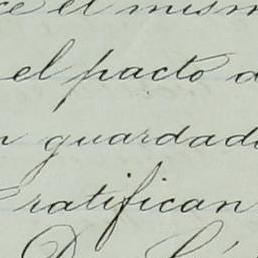 el mism
el pacto d
guardad
ratifican